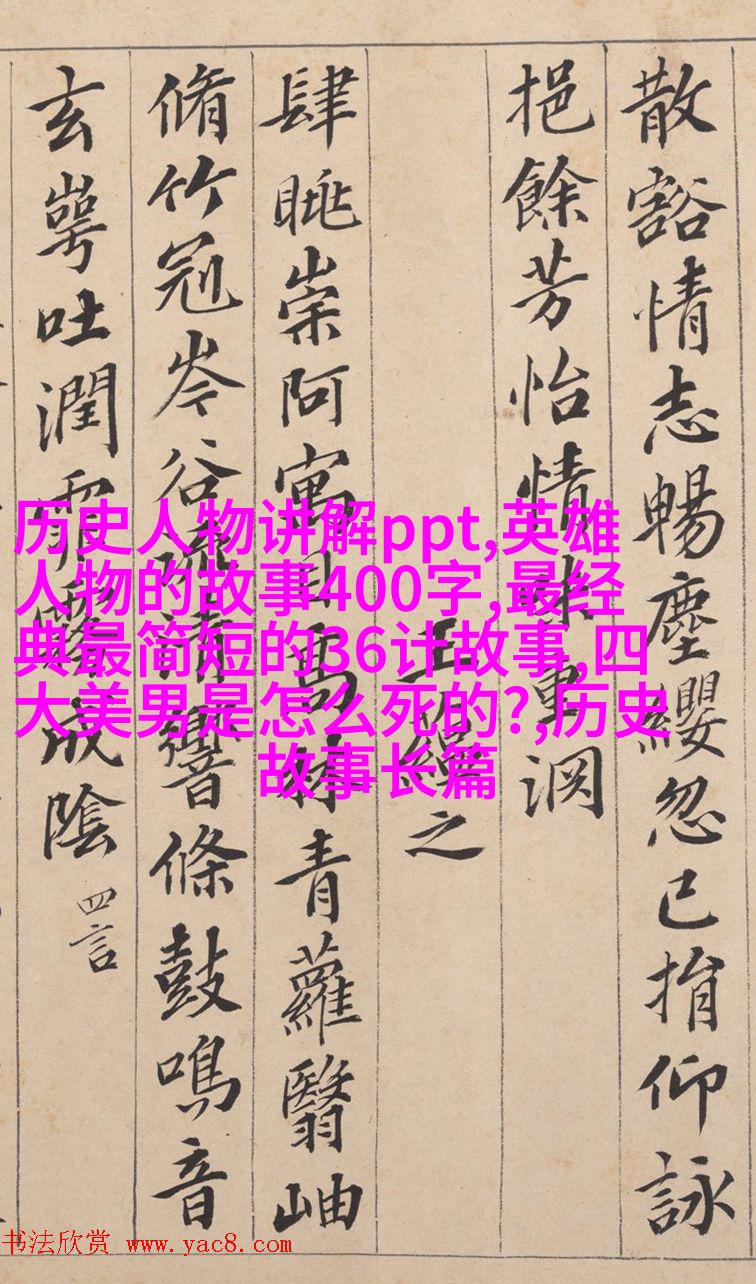 散豁情志暢塵纓忽已捐仰詠
挹餘芳怡情味重渕
王蘊之
肆眺崇阿寓目高林青蘿翳岫
脩竹冠岑谷流清響條鼓鳴音
玄崿吐潤霏霧成陰 四言
历史人物讲解ppt,英雄
人物的故事400字,最经
典最简短的36计故事,四
大美男是怎么死的?,历史
故事长篇
书法欣赏 www.yac8.com